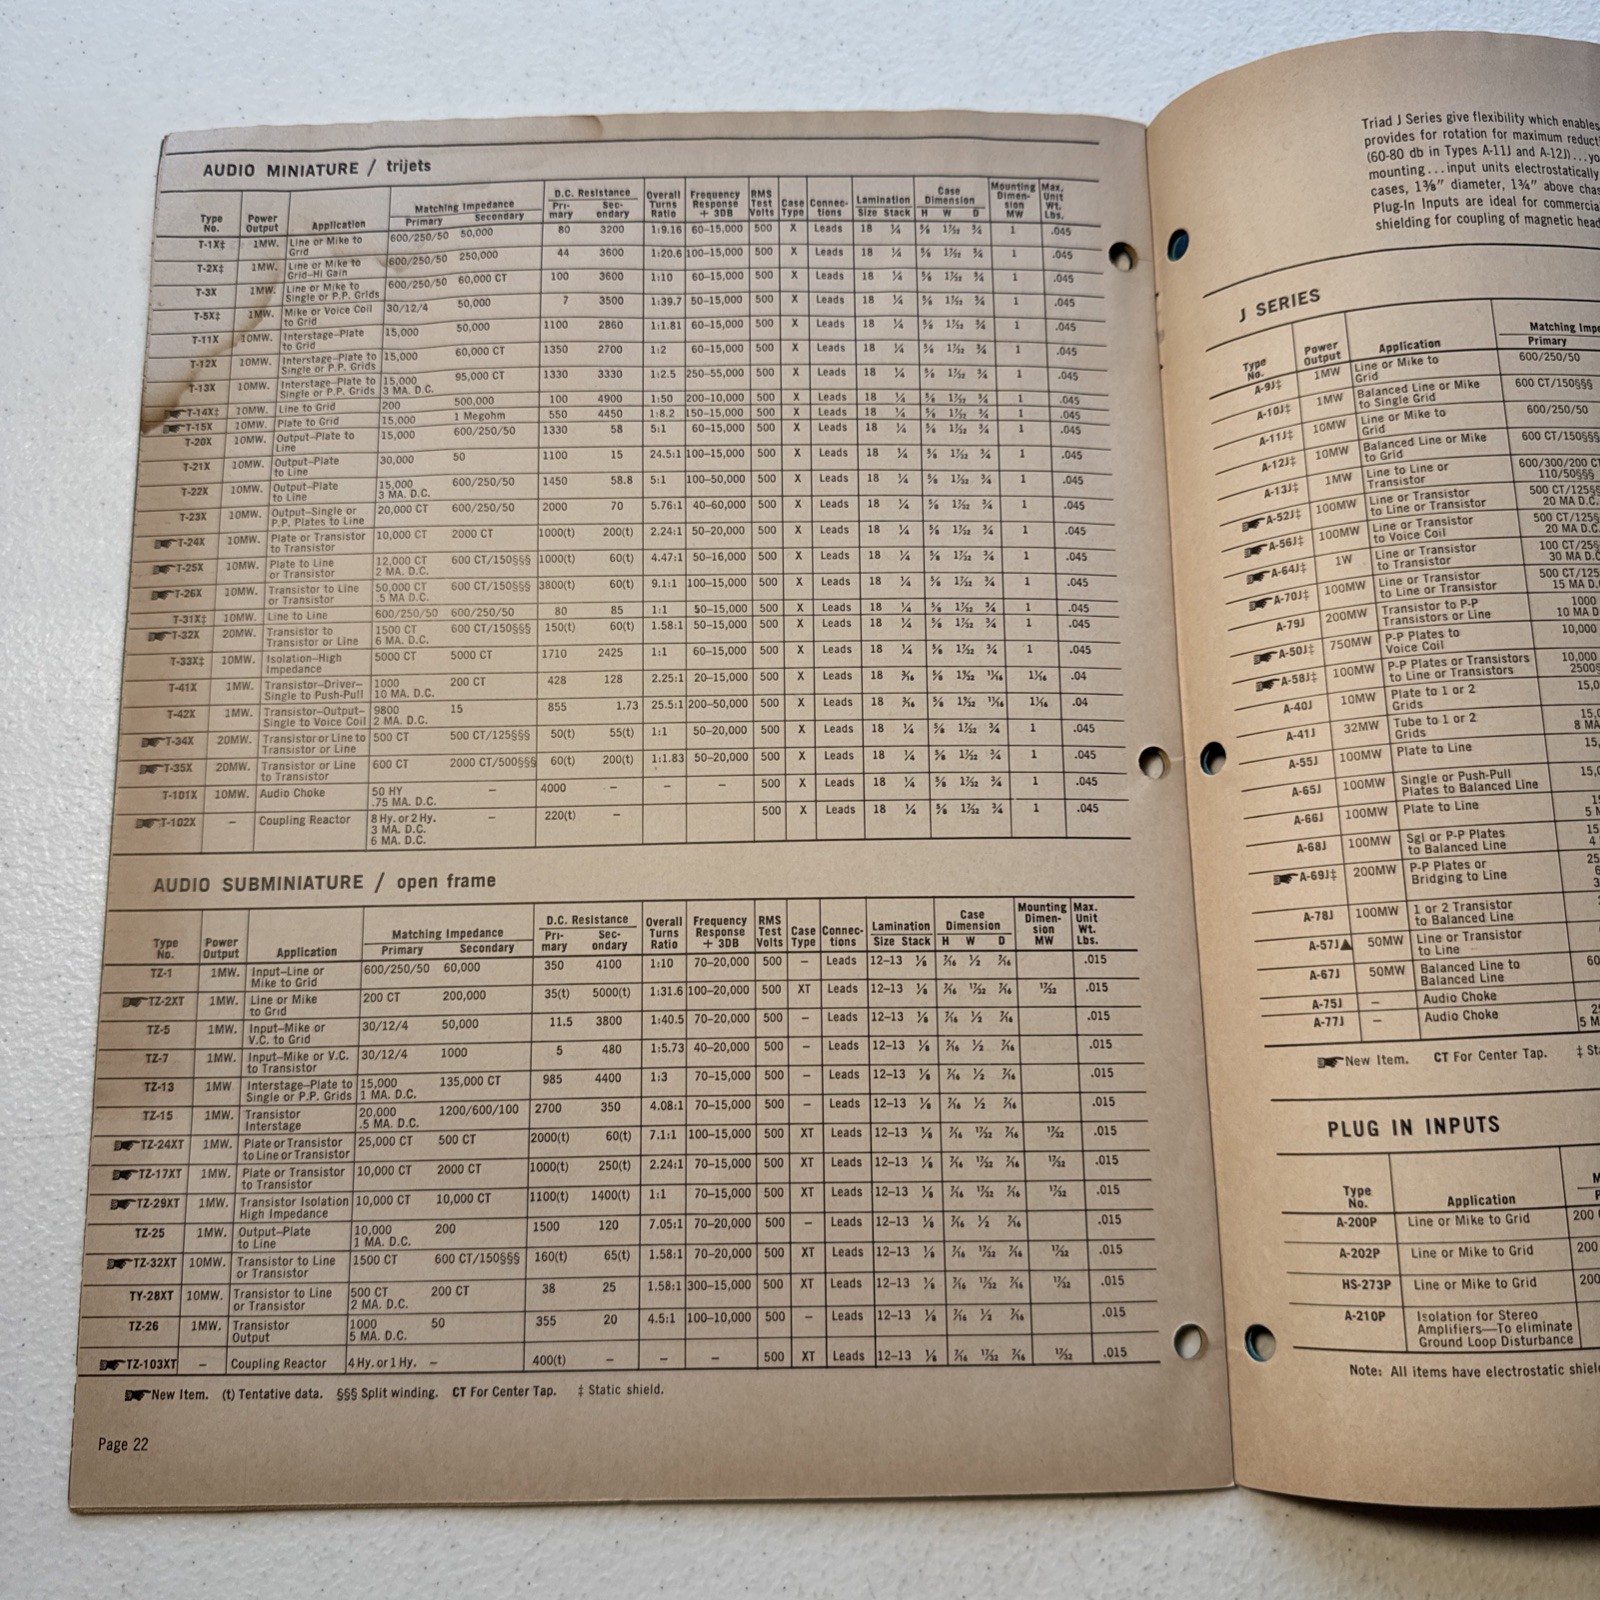 AUDIO MINIATURE / trijets
Type No. Power Output Application Matching Impedance Primary Secondary D.C. Resistance Pri-mary Sec-ondary Overall Turns Ratio Frequency Response + 3DB RMS Test Volts Case Type Connec-tions Lamination Size Stack Case Dimension H W D Mounting Dimen-sion MW Max. Unit Wt. Lbs.
T-1X‡ 1MW. Line or Mike to Grid 600/250/50 50,000 80 3200 1:9.16 60–15,000 500 X Leads 18 ¼ 1 .045
T-2X‡ 1MW. Line or Mike to Grid–Hi Gain 600/250/50 250,000 44 3600 1:20.6 100–15,000 500 X Leads 18 ¼ 1 .045
T-3X 1MW. Line or Mike to Single or P.P. Grids 600/250/50 60,000 CT 100 3600 1:10 60–15,000 500 X Leads 18 ¼ 1 .045
T-5X‡ 1MW. Mike or Voice Coil to Grid 30/12/4 50,000 7 3500 1:39.7 50–15,000 500 X Leads 18 ¼ 1 .045
T-11X 10MW. Interstage–Plate to Grid 15,000 50,000 1100 2860 1:1.81 60–15,000 500 X Leads 18 ¼ 1 .045
T-12X 10MW. Interstage–Plate to Single or P.P. Grids 15,000 60,000 CT 1350 2700 1:2 60–15,000 500 X Leads 18 ¼ 1 .045
T-13X 10MW. Interstage–Plate to Single or P.P. Grids 15,000 3 MA. D.C. 95,000 CT 1330 3330 1:2.5 250–55,000 500 X Leads 18 ¼ 1 .045
T-14X‡ 10MW. Line to Grid 200 500,000 100 4900 1:50 200–10,000 500 X Leads 18 ¼ 1 .045
T-15X 10MW. Plate to Grid 15,000 1 Megohm 550 4450 1:8.2 150–15,000 500 X Leads 18 ¼ 1 .045
T-20X 10MW. Output–Plate to Line 15,000 600/250/50 1330 58 5:1 60–15,000 500 X Leads 18 ¼ 1 .045
T-21X 10MW. Output–Plate to Line 30,000 50 1100 15 24.5:1 100–15,000 500 X Leads 18 ¼ 1 .045
T-22X 10MW. Output–Plate to Line 15,000 3 MA. D.C. 600/250/50 1450 58.8 5:1 100–50,000 500 X Leads 18 ¼ 1 .045
T-23X 10MW. Output–Single or P.P. Plates to Line 20,000 CT 600/250/50 2000 70 5.76:1 40–60,000 500 X Leads 18 ¼ 1 .045
T-24X 10MW. Plate or Transistor to Transistor 10,000 CT 2000 CT 1000(t) 200(t) 2.24:1 50–20,000 500 X Leads 18 ¼ 1 .045
T-25X 10MW. Plate to Line or Transistor 12,000 CT 2 MA. D.C. 600 CT/150§§§ 1000(t) 60(t) 4.47:1 50–16,000 500 X Leads 18 ¼ 1 .045
T-26X 10MW. Transistor to Line or Transistor 50,000 CT .5 MA. D.C. 600 CT/150§§§ 3800(t) 60(t) 9.1:1 100–15,000 500 X Leads 18 ¼ 1 .045
T-31X‡ 10MW. Line to Line 600/250/50 600/250/50 80 85 1:1 50–15,000 500 X Leads 18 ¼ 1 .045
T-32X 20MW. Transistor to Transistor or Line 1500 CT 6 MA. D.C. 600 CT/150§§§ 150(t) 60(t) 1.58:1 50–15,000 500 X Leads 18 ¼ 1 .045
T-33X‡ 10MW. Isolation–High Impedance 5000 CT 5000 CT 1710 2425 1:1 60–15,000 500 X Leads 18 ¼ 1 .045
T-41X 1MW. Transistor–Driver–Single to Push-Pull 1000 10 MA. D.C. 200 CT 428 128 2.25:1 20–15,000 500 X Leads 18 .04
T-42X 1MW. Transistor–Output–Single to Voice Coil 9800 2 MA. D.C. 15 855 1.73 25.5:1 200–50,000 500 X Leads 18 .04
T-34X 20MW. Transistor or Line to Transistor or Line 500 CT 500 CT/125§§§ 50(t) 55(t) 1:1 50–20,000 500 X Leads 18 ¼ 1 .045
T-35X 20MW. Transistor or Line to Transistor 600 CT 2000 CT/500§§§ 60(t) 200(t) 1:1.83 50–20,000 500 X Leads 18 ¼ 1 .045
T-101X 10MW. Audio Choke 50 HY .75 MA. D.C. – 4000 – – – 500 X Leads 18 ¼ 1 .045
T-102X – Coupling Reactor 8 Hy. or 2 Hy. 3 MA. D.C. 6 MA. D.C. – 220(t) – 500 X Leads 18 ¼ 1 .045
AUDIO SUBMINIATURE / open frame
Type No. Power Output Application Matching Impedance Primary Secondary D.C. Resistance Pri-mary Sec-ondary Overall Turns Ratio Frequency Response + 3DB RMS Test Volts Case Type Connec-tions Lamination Size Stack Case Dimension H W D Mounting Dimen-sion MW Max. Unit Wt. Lbs.
TZ-1 1MW. Input–Line or Mike to Grid 600/250/50 60,000 350 4100 1:10 70–20,000 500 – Leads 12–13 ⅛ .015
TZ-2XT 1MW. Line or Mike to Grid 200 CT 200,000 35(t) 5000(t) 1:31.6 100–20,000 500 XT Leads 12–13 ⅛ .015
TZ-5 1MW. Input–Mike or V.C. to Grid 30/12/4 50,000 11.5 3800 1:40.5 70–20,000 500 – Leads 12–13 ⅛ .015
TZ-7 1MW. Input–Mike or V.C. to Transistor 30/12/4 1000 5 480 1:5.73 40–20,000 500 – Leads 12–13 ⅛ .015
TZ-13 1MW. Interstage–Plate to Single or P.P. Grids 15,000 1 MA. D.C. 135,000 CT 985 4400 1:3 70–15,000 500 – Leads 12–13 ⅛ .015
TZ-15 1MW. Transistor Interstage 20,000 .5 MA. D.C. 1200/600/100 2700 350 4.08:1 70–15,000 500 – Leads 12–13 ⅛ .015
TZ-24XT 1MW. Plate or Transistor to Line or Transistor 25,000 CT 500 CT 2000(t) 60(t) 7.1:1 100–15,000 500 XT Leads 12–13 ⅛ .015
TZ-17XT 1MW. Plate or Transistor to Transistor 10,000 CT 2000 CT 1000(t) 250(t) 2.24:1 70–15,000 500 XT Leads 12–13 ⅛ .015
TZ-29XT 1MW. Transistor Isolation High Impedance 10,000 CT 10,000 CT 1100(t) 1400(t) 1:1 70–15,000 500 XT Leads 12–13 ⅛ .015
TZ-25 1MW. Output–Plate to Line 10,000 1 MA. D.C. 200 1500 120 7.05:1 70–20,000 500 – Leads 12–13 ⅛ .015
TZ-32XT 10MW. Transistor to Line or Transistor 1500 CT 600 CT/150§§§ 160(t) 65(t) 1.58:1 70–20,000 500 XT Leads 12–13 ⅛ .015
TY-28XT 10MW. Transistor to Line or Transistor 500 CT 2 MA. D.C. 200 CT 38 25 1.58:1 300–15,000 500 XT Leads 12–13 ⅛ .015
TZ-26 1MW. Transistor Output 1000 5 MA. D.C. 50 355 20 4.5:1 100–10,000 500 – Leads 12–13 ⅛ .015
TZ-103XT – Coupling Reactor 4 Hy. or 1 Hy. – 400(t) – – – 500 XT Leads 12–13 ⅛ .015
New Item. (t) Tentative data. §§§ Split winding. CT For Center Tap. ‡ Static shield.
Page 22
Triad J Series give flexibility which enables
provides for rotation for maximum
(60-80 db in Types A-11J and A-12J)...
mounting...input units electrostatically
cases, 1⅜″ diameter, 1¾″ above
Plug-In Inputs are ideal for
shielding for coupling of magnetic
J SERIES
Type No. Power Output Application Matching Primary
A-9J‡ 1MW Line or Mike to Grid 600/250/50
A-10J‡ 1MW Balanced Line or Mike to Single Grid 600 CT/150§§§
A-11J‡ 10MW Line or Mike to Grid 600/250/50
A-12J‡ 10MW Balanced Line or Mike to Grid 600 CT/150§§§
A-13J‡ 1MW Line to Line or Transistor 600/300/200 CT 110/50§§§
A-52J‡ 100MW Line or Transistor to Line or Transistor 500 CT/125§§ 20 MA D.C.
A-56J‡ 100MW Line or Transistor to Voice Coil 500 CT/125§ 20 MA D.C.
A-64J‡ 1W Line or Transistor to Transistor 100 CT/25§ 30 MA D.C.
A-70J‡ 100MW Line or Transistor to Line or Transistor 500 CT/125 15 MA D.
A-79J 200MW Transistor to P-P Transistors or Line 1000 10 MA D
A-50J‡ 750MW P-P Plates to Voice Coil 10,000
A-58J‡ 100MW P-P Plates or Transistors to Line or Transistors 10,000
A-40J 10MW Plate to 1 or 2 Grids
A-41J 32MW Tube to 1 or 2 Grids
A-55J 100MW Plate to Line
A-65J 100MW Single or Push-Pull Plates to Balanced Line
A-66J 100MW Plate to Line
A-68J 100MW Sgl or P-P Plates to Balanced Line
A-69J‡ 200MW P-P Plates or Bridging to Line
A-78J 100MW 1 or 2 Transistor to Balanced Line
A-57J▲ 50MW Line or Transistor to Line
A-67J 50MW Balanced Line to Balanced Line
A-75J – Audio Choke
A-77J – Audio Choke
New Item. CT For Center Tap. ‡
PLUG IN INPUTS
Type No. Application
A-200P Line or Mike to Grid 200
A-202P Line or Mike to Grid 200
HS-273P Line or Mike to Grid 200
A-210P Isolation for Stereo Amplifiers—To eliminate Ground Loop Disturbance
Note: All items have electrostatic